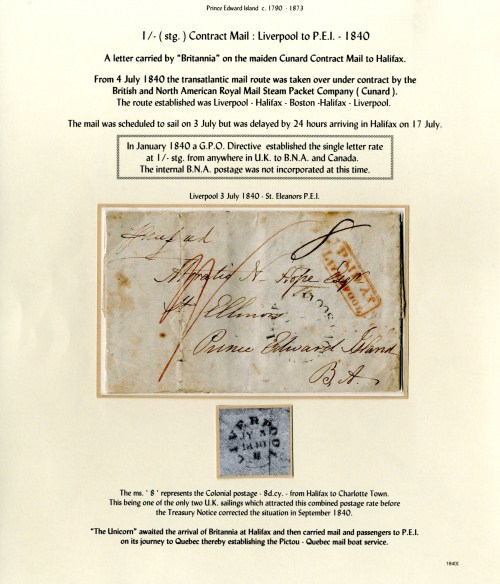 Prince Edward Island c. 1790 - 1873
1/- ( stg. ) Contract Mail : Liverpool to P.E.I. - 1840
A letter carried by "Britannia" on the maiden Cunard Contract Mail to Halifax.
From 4 July 1840 the transatlantic mail route was taken over under contract by the
British and North American Royal Mail Steam Packet Company ( Cunard ).
The route established was Liverpool - Halifax - Boston -Halifax - Liverpool.
The mail was scheduled to sail on 3 July but was delayed by 24 hours arriving in Halifax on 17 July.
In January 1840 a G.P.O. Directive established the single letter rate
at 1/- stg. from anywhere in U.K. to B.N.A. and Canada.
The internal B.N.A. postage was not incorporated at this time.
Liverpool 3 July 1840 - St. Eleanors P.E.I.
8
PAID AT
LIVERPOOL
Horatio N. Hope Esqr
St Ellinors
Prince Edward Island
B. A.
LIVERPOOL
JY 3
1840
The ms. ' 8 ' represents the Colonial postage - 8d.cy. - from Halifax to Charlotte Town.
This being one of the only two U.K. sailings which attracted this combined postage rate before
the Treasury Notice corrected the situation in September 1840.
"The Unicorn" awaited the arrival of Britannia at Halifax and then carried mail and passengers to P.E.I.
on its journey to Quebec thereby establishing the Pictou - Quebec mail boat service.